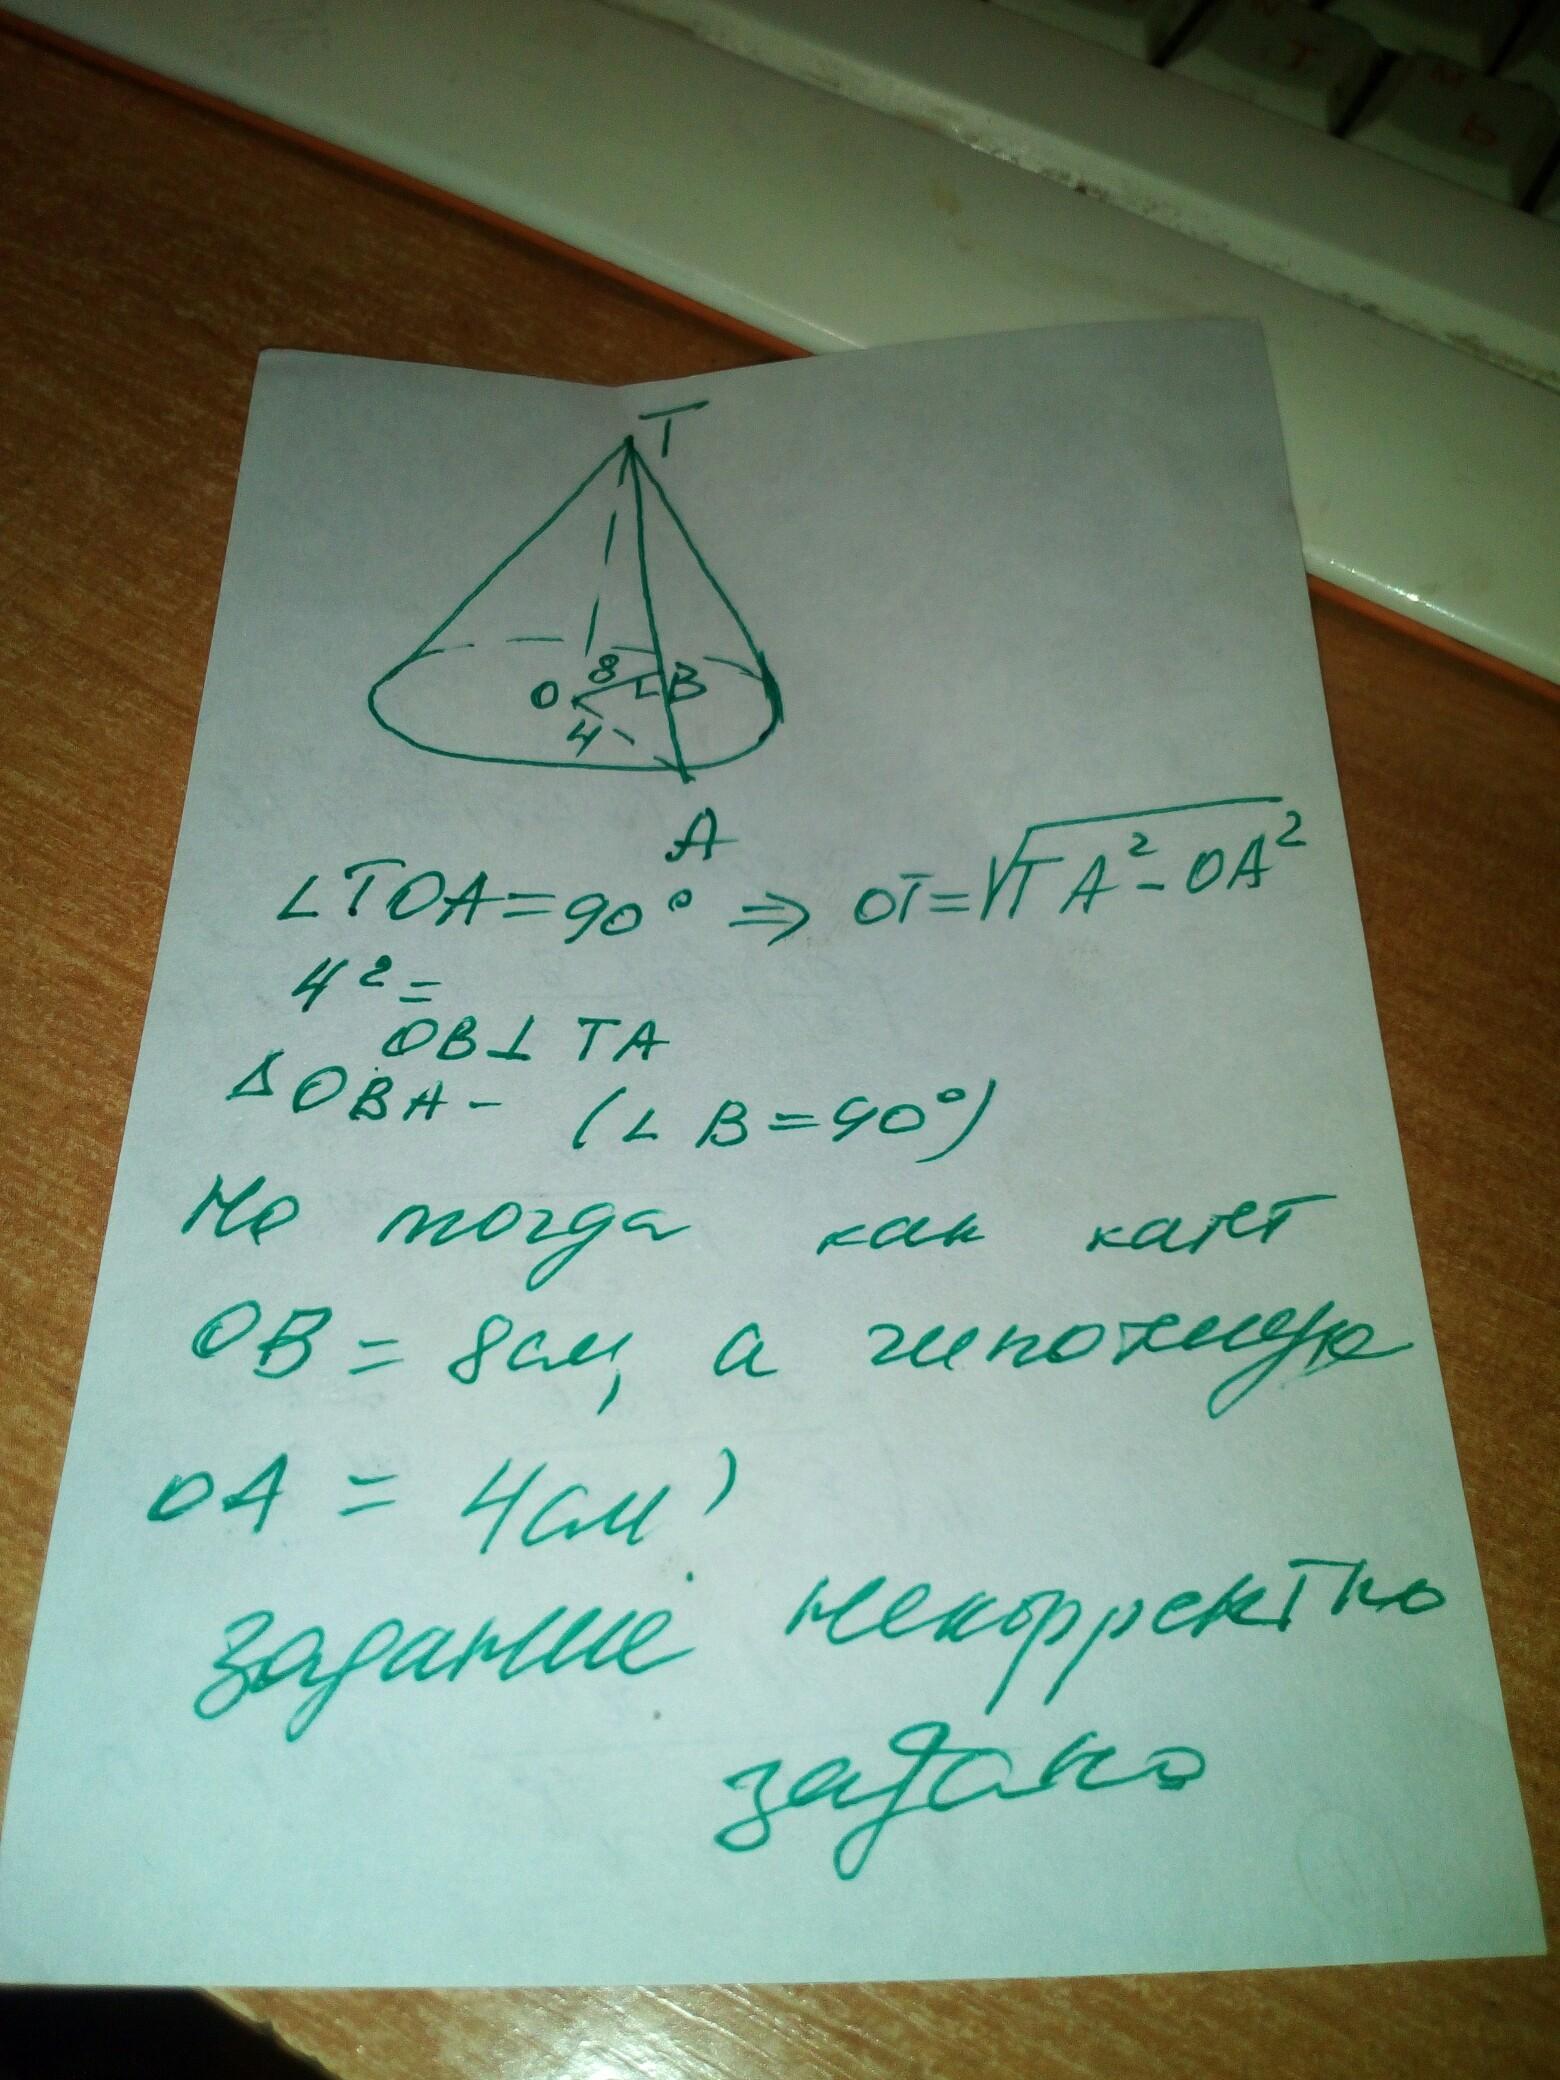 T
8
O
B
4
A
∠TOA=90° ⇒ OT=√TA²-OA²
4²=
OB⊥ TA
ΔOBA- (∠ B=90°)
Но тогда как катет
OB = 8см, а гипотенуза
OA = 4см?
задание некорректно
задано